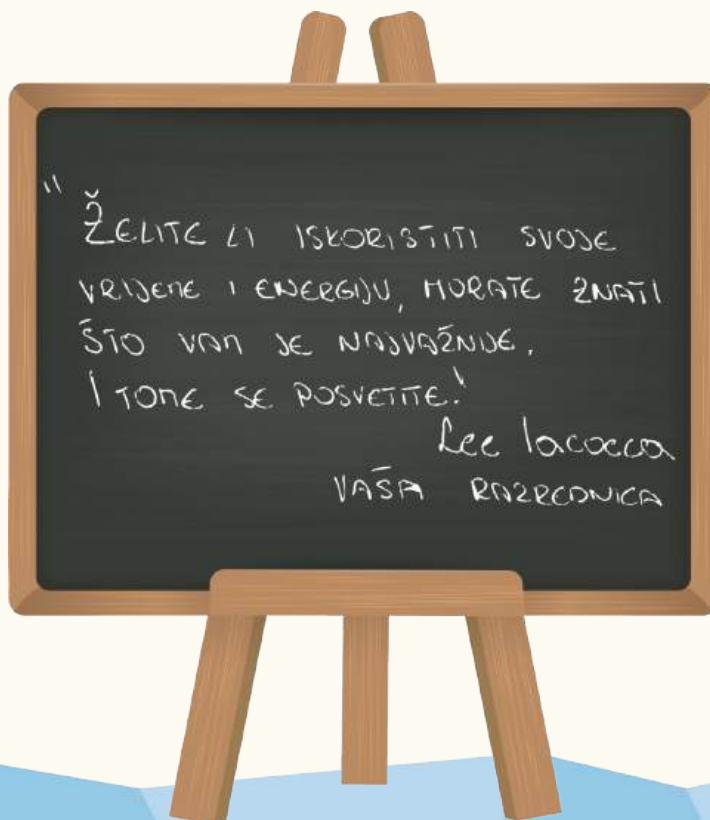 "
ŽELITE LI ISKORISTITI SVOJE
VRIJEME I ENERGIJU, MORATE ZNATI
ŠTO VAM JE NAJVAŽNIJE.
I TOME SE POSVETITE!
Lee Iacocca
VAŠA RAZREDNICA